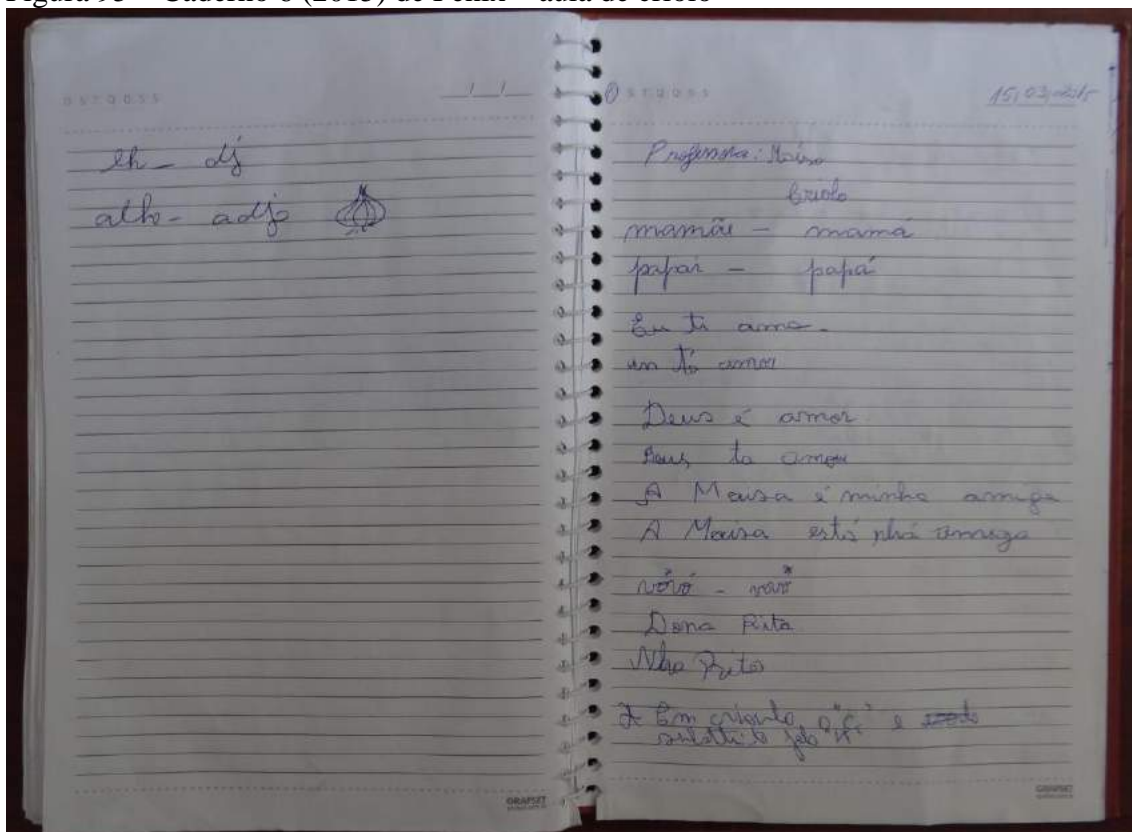 D S T Q Q S S
lh - dj
alho - adjo
GRAFSET
D S T Q Q S S 15/03/2015
Professora: Maísa
Criolo
mamãe - mamá
papai - papá
Eu ti amo.
un tó amor
Deus é amor.
Deus ta amor
A Maisa é minha amiga
A Maisa está nhá amiga
vóvó -
Dona Rita
Nha Rita
Em crioulo o "C" é
substituido pelo "K"
GRAFSET